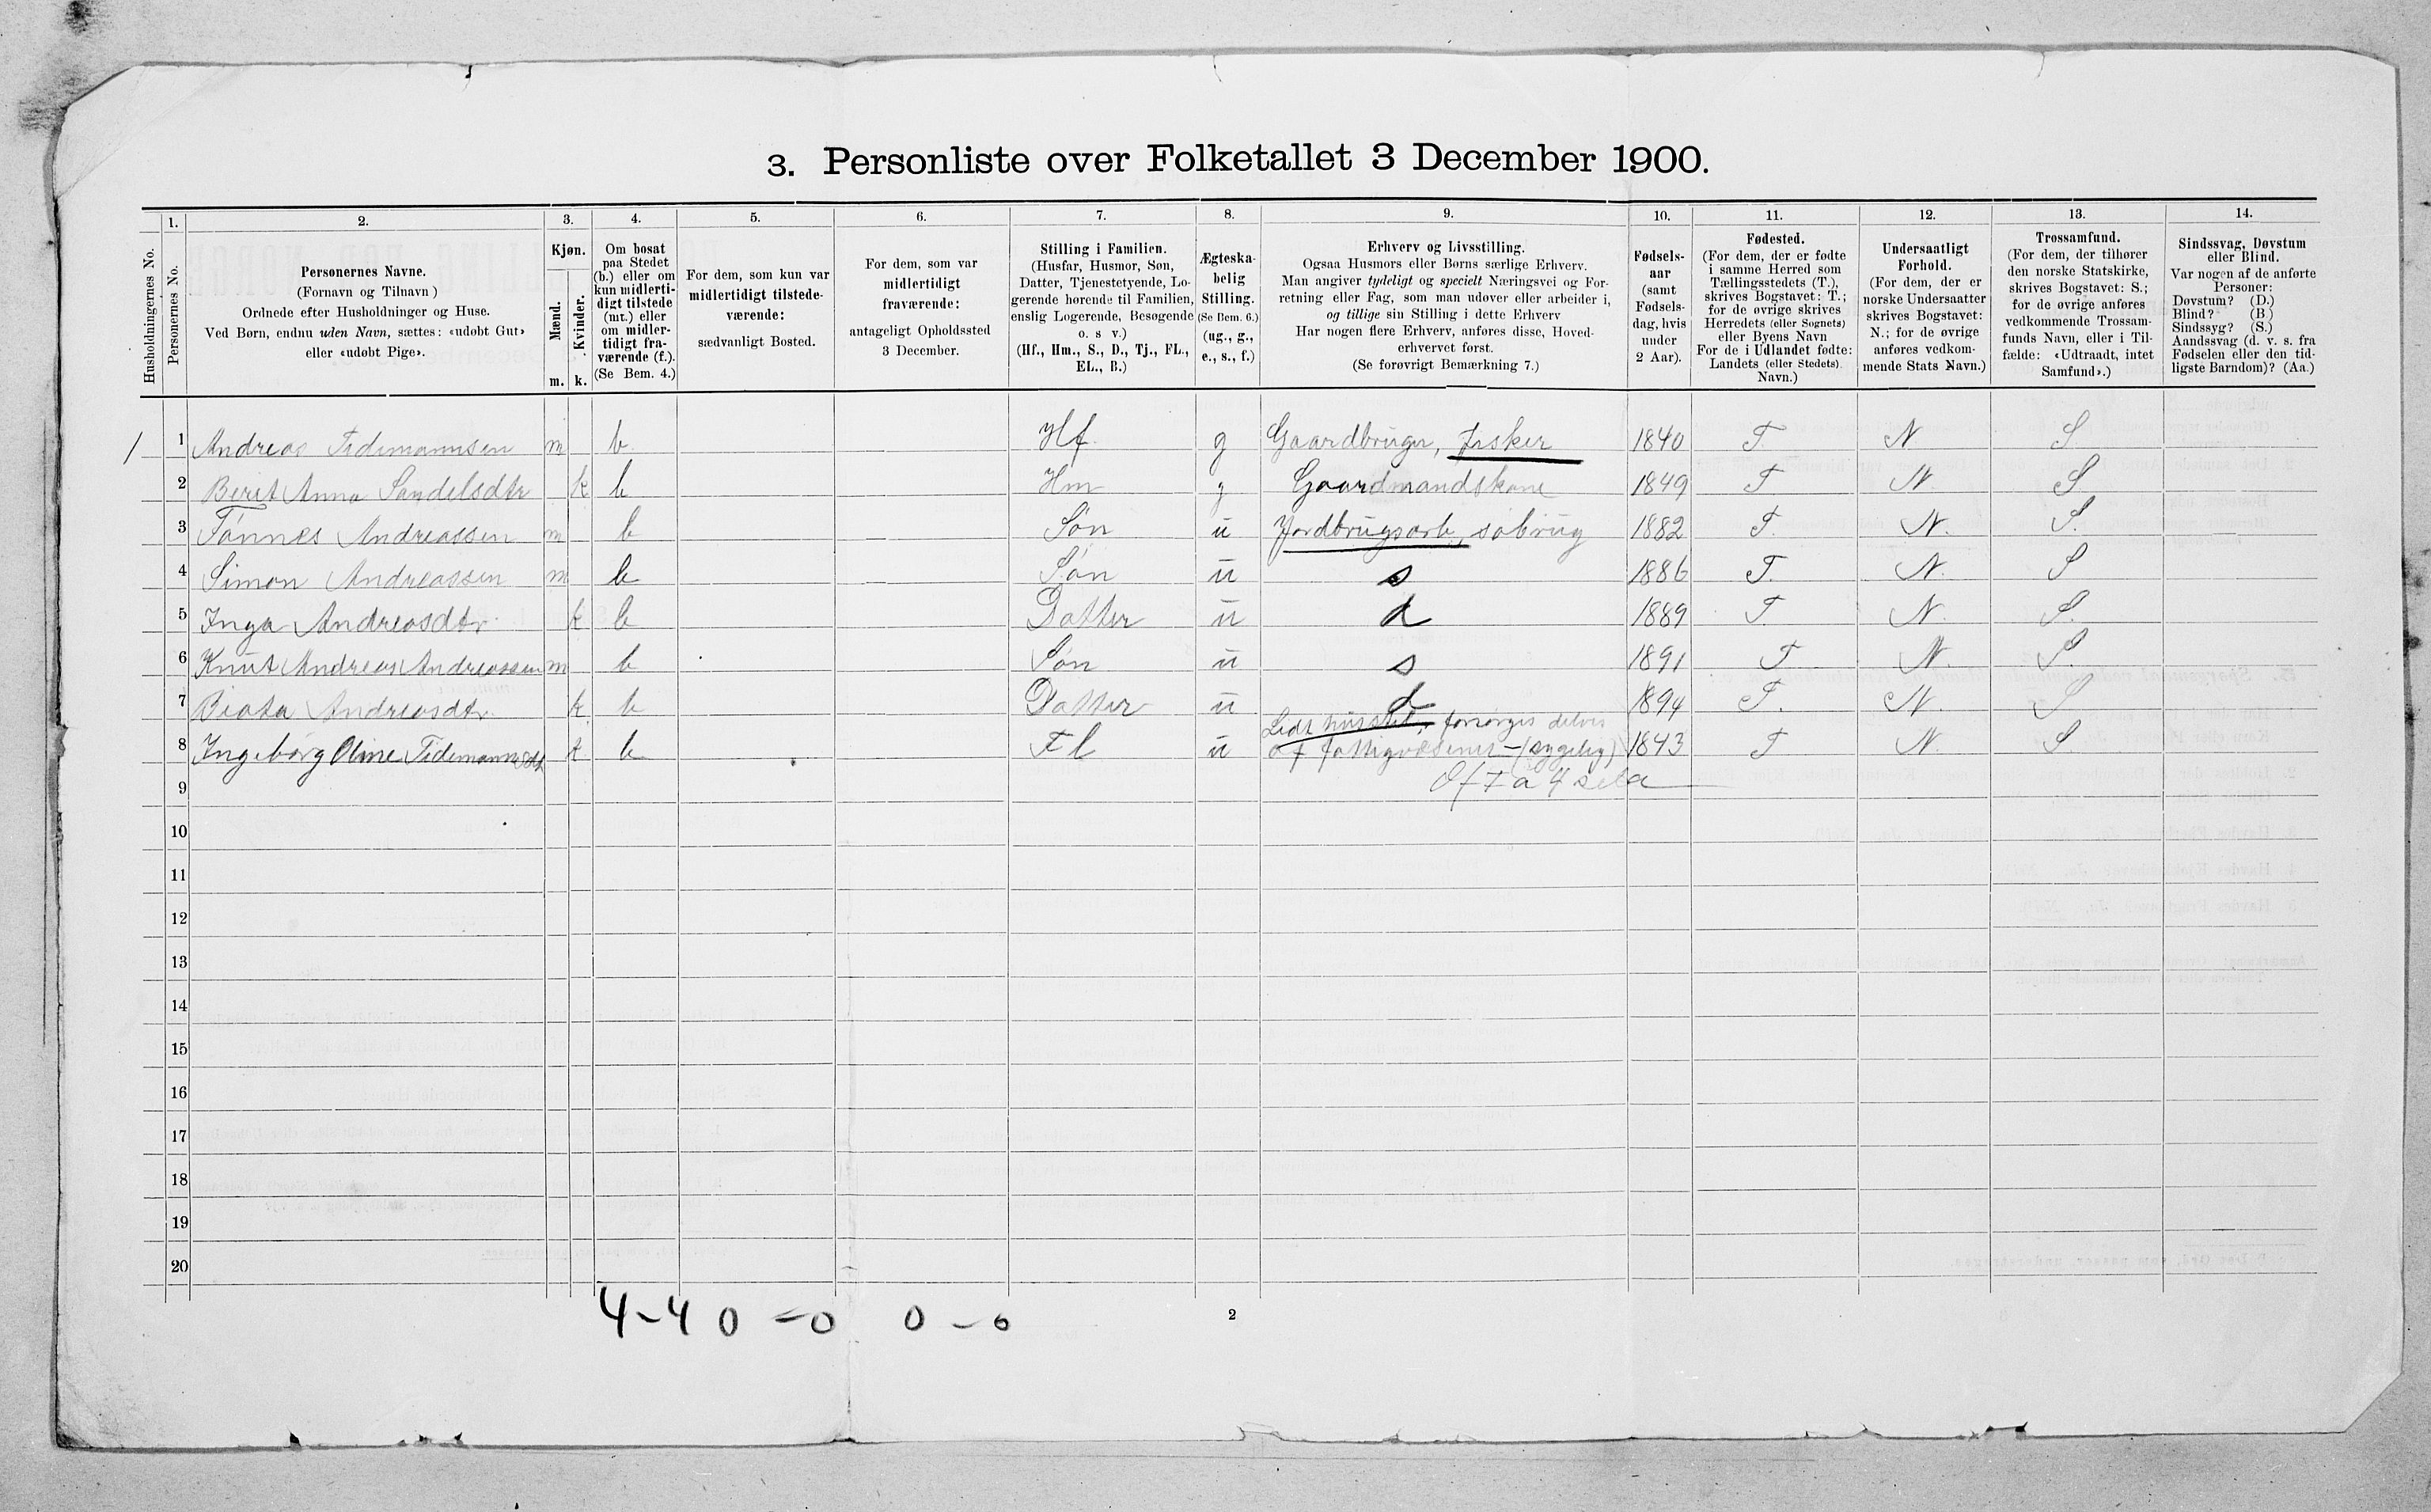 3. Personliste over Folketallet 3 December 1900.
1. 2. 3. 4. 5. 6. 7. 8. 9. 10. 11. 12. 13. 14.
Husholdningernes No.
Personernes No.
Personernes Navne.
(Fornavn og Tilnavn)
Ordnede efter Husholdninger og Huse.
Ved Børn, endnu uden Navn, sættes: «udøbt Gut»
eller «udøbt Pige».
Kjøn.
Mænd.
Kvinder.
m. k.
Om bosat
paa Stedet
(b.) eller om
kun midlerti-
digt tilstede
(mt.) eller
om midler-
tidigt fra-
værende (f.).
(Se Bem. 4.)
For dem, som kun var
midlertidigt tilstede-
værende:
sædvanligt Bosted.
For dem, som var
midlertidigt
fraværende:
antageligt Opholdssted
3 December.
Stilling i Familien.
(Husfar, Husmor, Søn,
Datter, Tjenestetyende, Lo-
gerende hørende til Familien,
enslig Logerende, Besøgende
o. s v.)
(Hf., Hm., S., D., Tj., FL.,
EL., B.)
Ægteska-
belig
Stilling.
(Se Bem. 6.)
(ug., g.,
e., s., f.)
Erhverv og Livsstilling.
Ogsaa Husmors eller Børns særlige Erhverv.
Man angiver tydeligt og specielt Næringsvei og For-
retning eller Fag, som man udøver eller arbeider i,
og tillige sin Stilling i dette Erhverv
Har nogen flere Erhverv, anføres disse, Hoved-
erhvervet først.
(Se forøvrigt Bemærkning 7.)
Fødsels-
aar
(samt
Fødsels-
dag, hvis
under
2 Aar).
Fødested.
(For dem, der er fødte
i samme Herred som
Tællingsstedets (T.),
skrives Bogstavet: T.;
for de øvrige skrives
Herredets (eller Sognets)
eller Byens Navn
For de i Udlandet fødte:
Landets (eller Stedets)
Navn.)
Undersaatligt
Forhold.
(For dem, der er
norske Undersaatter
skrives Bogstavet:
N.; for de øvrige
anføres vedkom-
mende Stats Navn.)
Trossamfund.
(For dem, der tilhører
den norske Statskirke,
skrives Bogstavet: S.;
for de øvrige anføres
vedkommende Trossam-
funds Navn, eller i Til-
fælde: «Udtraadt, intet
Samfund».)
Sindssvag, Døvstum
eller Blind.
Var nogen af de anførte
Personer:
Døvstum? (D.)
Blind? (B.)
Sindssyg? (S.)
Aandssvag (d. v. s. fra
Fødselen eller den tid-
ligste Barndom)? (Aa.)
1 1 Andreas Tidemannsen m b. Hf. g Gaardbruger, Fisker 1840 T. N S
2 Berit Anna Sandelsdtr k b Hm g Gaardmandskone 1849 T N. S
3 Tønnes Andreassen m b Søn u Jordbrugsarb, søbrug 1882 T. N. S.
4 Simon Andreassen m b Søn u s 1886 T. N. S
5 Inga Andreasdtr. k b Datter u d 1889 T. N. S.
6 Knut Andreas Andreassen m b Søn u s 1891 T N. S.
7 Beata Andreasdtr. k b Datter u d 1894 T. N. S
Lidt husstel, forsørges delvis
8 Ingeborg Oline Tidemannsdt k b Fl u af fattigvæsenet - (sygelig) 1843 T N. S
9
10
11
12
13
14
15
16
17
18
19
20
4-4 0 - 0 0 - 0
2